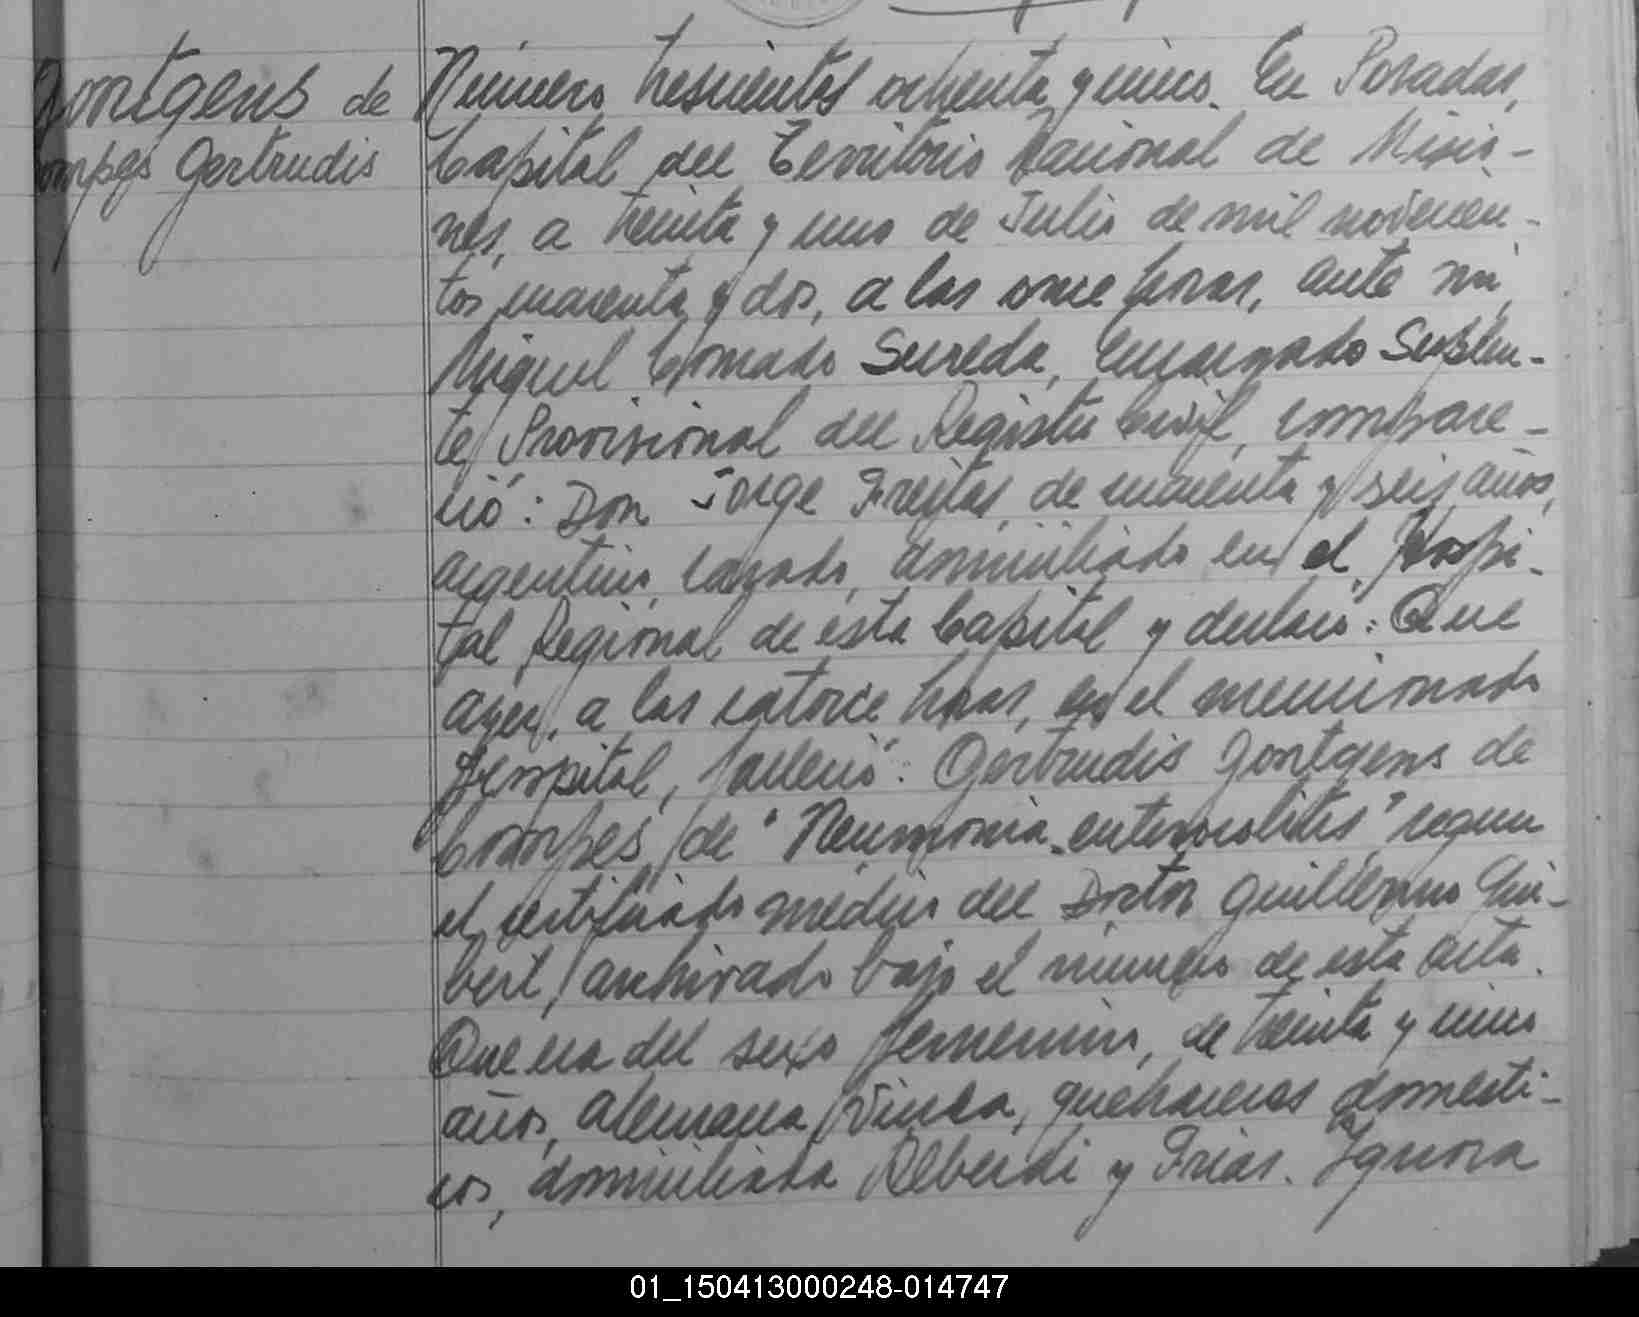 Gontgens de
Compes Gertrudis
Número trescientos ochenta y cinco. En Posadas,
Capital del Territorio Nacional de Misio-
nes, a treinta y uno de Julio de mil novecien-
tos cuarenta y dos, a las once horas, ante mí,
Miguel Conrado Sureda, Encargado Suplen-
te Provisional del Registro Civil, compare-
ció: Don Jorge Freitas, de cuarenta y seis años,
argentino, casado, domiciliado en el Hospi-
tal Regional de esta Capital y declaró: Que
ayer, a las catorce horas, en el mencionado
Hospital, falleció: Gertrudis Gontgens de
Compes, de "Neumonia enterocolitis" según
el certificado médico del Doctor Guillermo
archivado bajo el número de esta acta.
Que era del sexo femenino, de treinta y cinco
años, alemana, viuda, quehaceres domésti-
cos, domiciliada Alberdi y Frias. Ignora
01_150413000248-014747